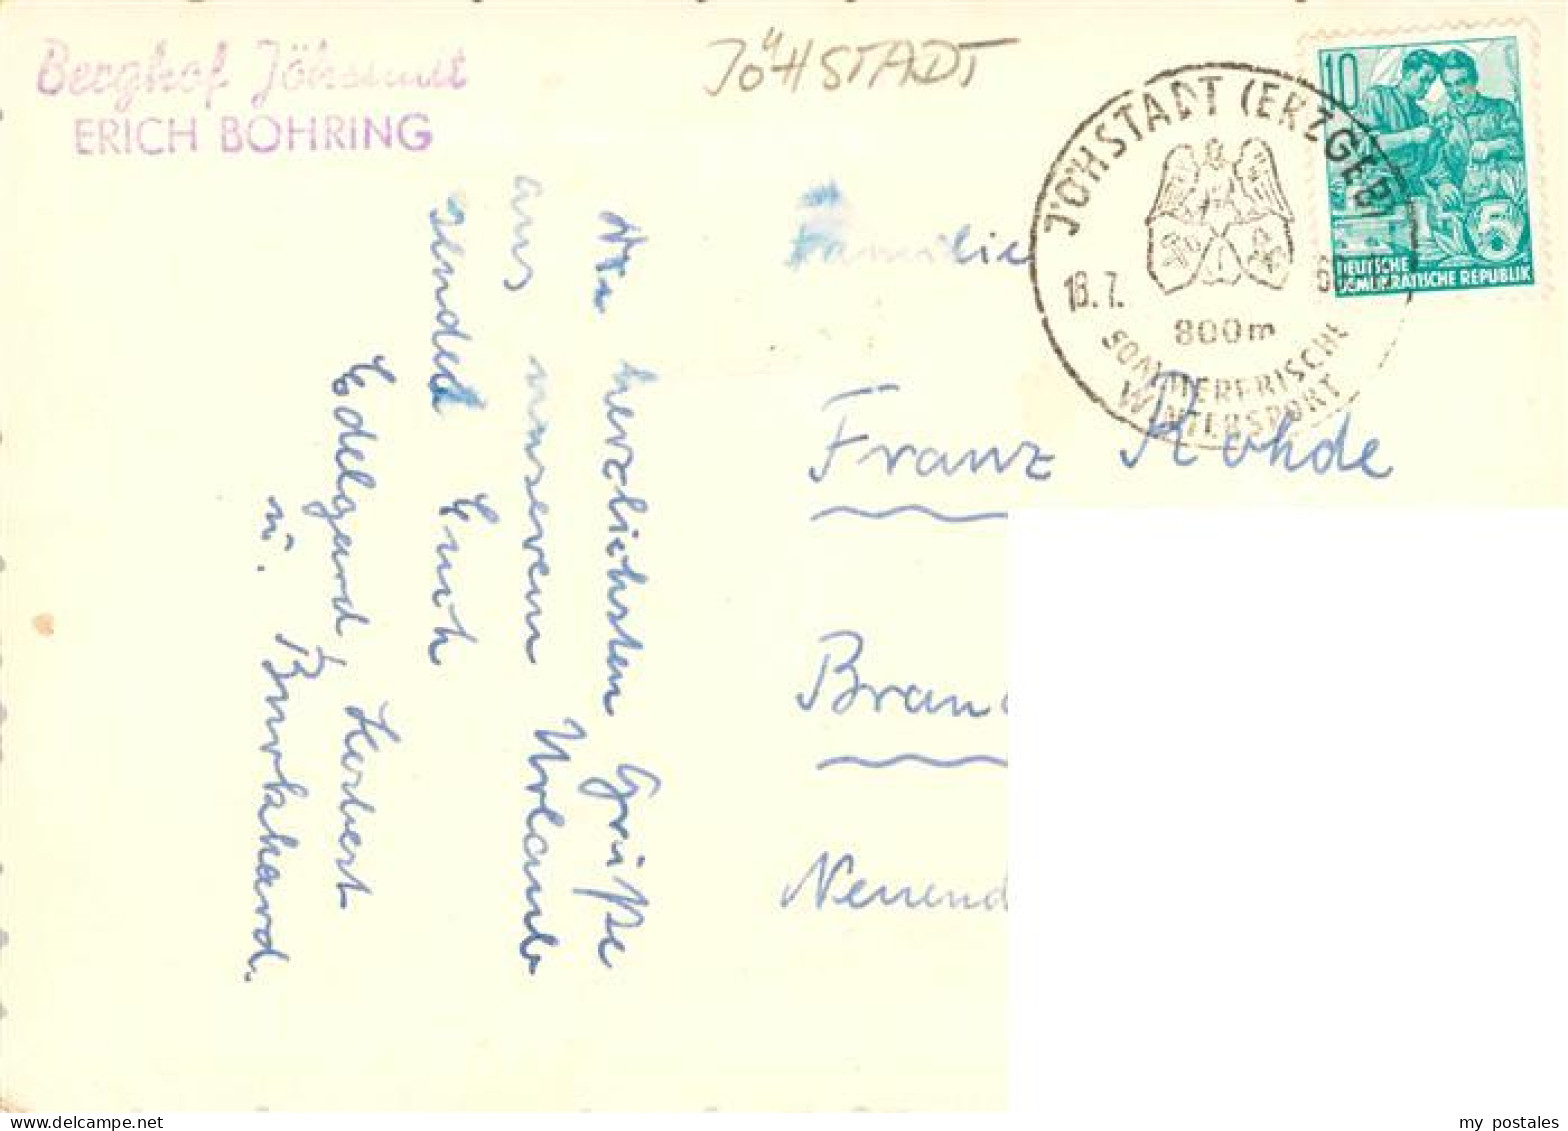 Berghof Jöhstadt
ERICH BÖHRING
JÖHSTADT
JÖHSTADT (ERZGEB)
18.7.
800m
SOMMERFRISCHE
WINTERSPORT
10
5
DEUTSCHE
DEMOKRATISCHE REPUBLIK
Die herzlichsten Grüße
aus unserem Urlaub
sendet Euch
Edelgard, Herbert
u. Burkhard.
Familie
Franz Rohde
Bran
Neuend
my postales